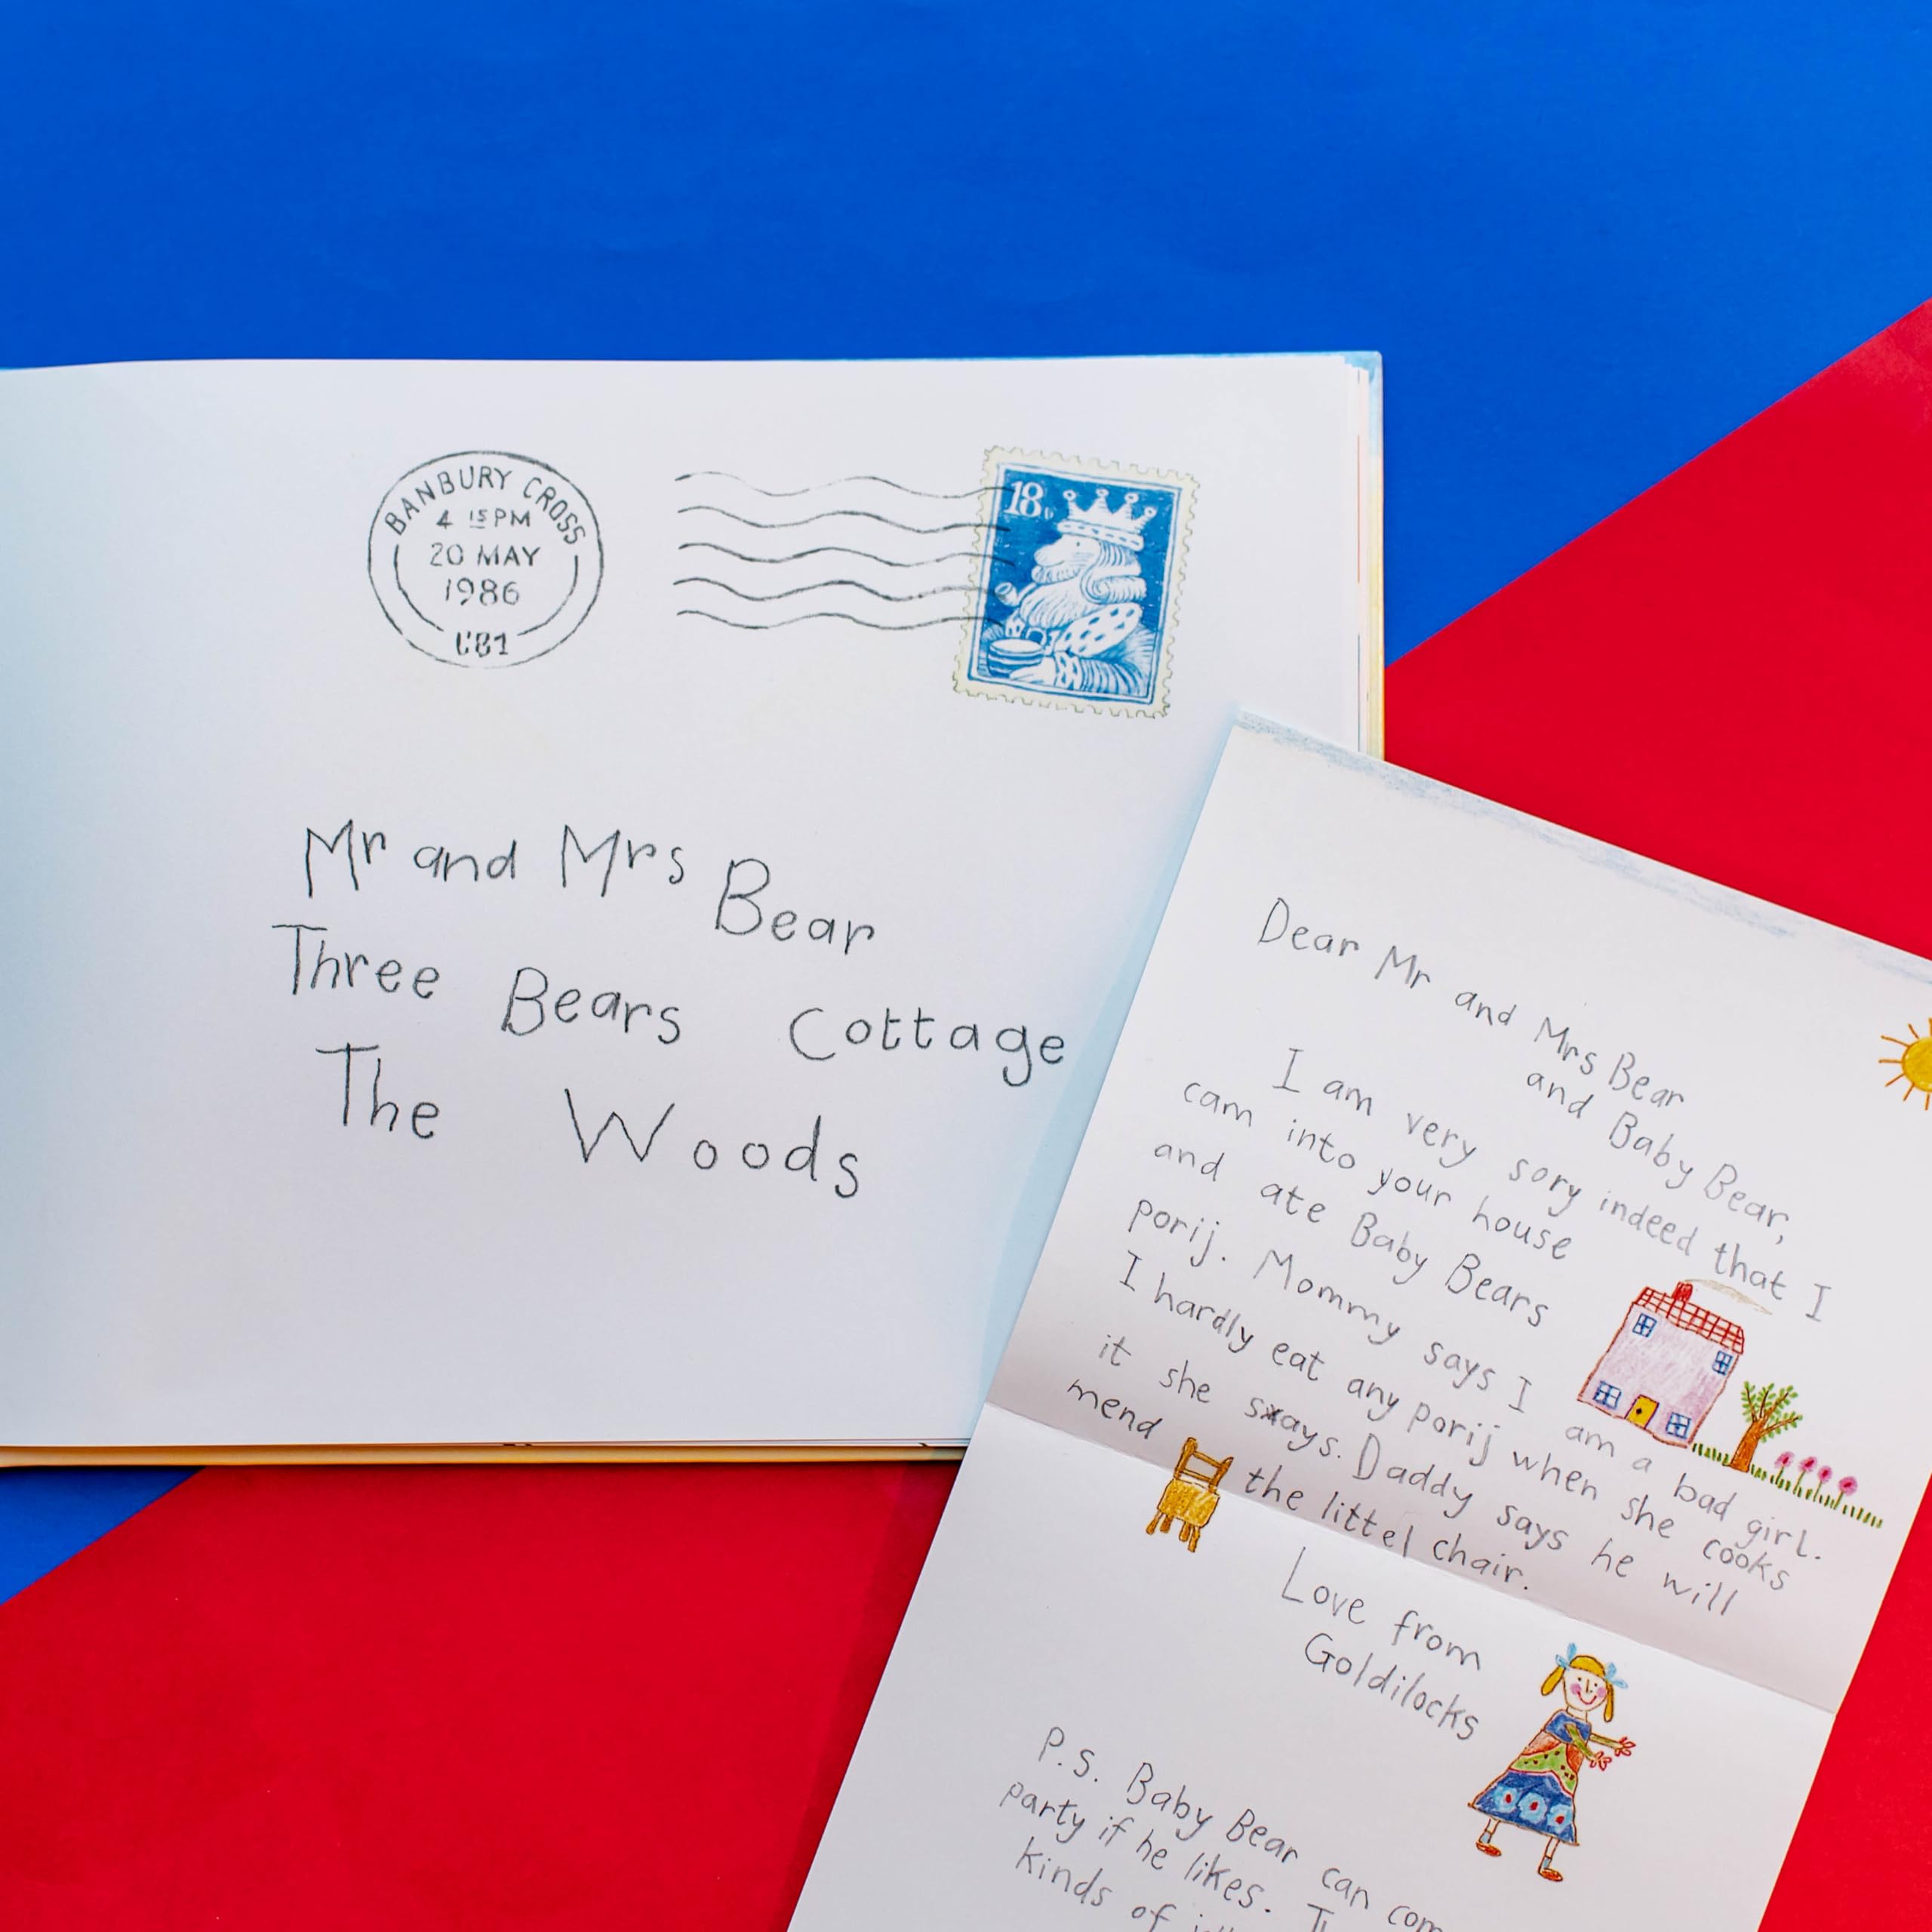 BANBURY CROSS
4 15 PM
20 MAY
1986
18
Mr and Mrs Bear
Three Bears Cottage
The Woods
Dear Mr and Mrs Bear
and Baby Bear,
I am very sory indeed that I
cam into your house
and ate Baby Bears
porij. Mommy says I am a bad girl.
I hardly eat any porij when she cooks
it she says. Daddy says he will
mend the littel chair.
Love from
Goldilocks
P.S. Baby Bear can com
party if he likes.
kinds of